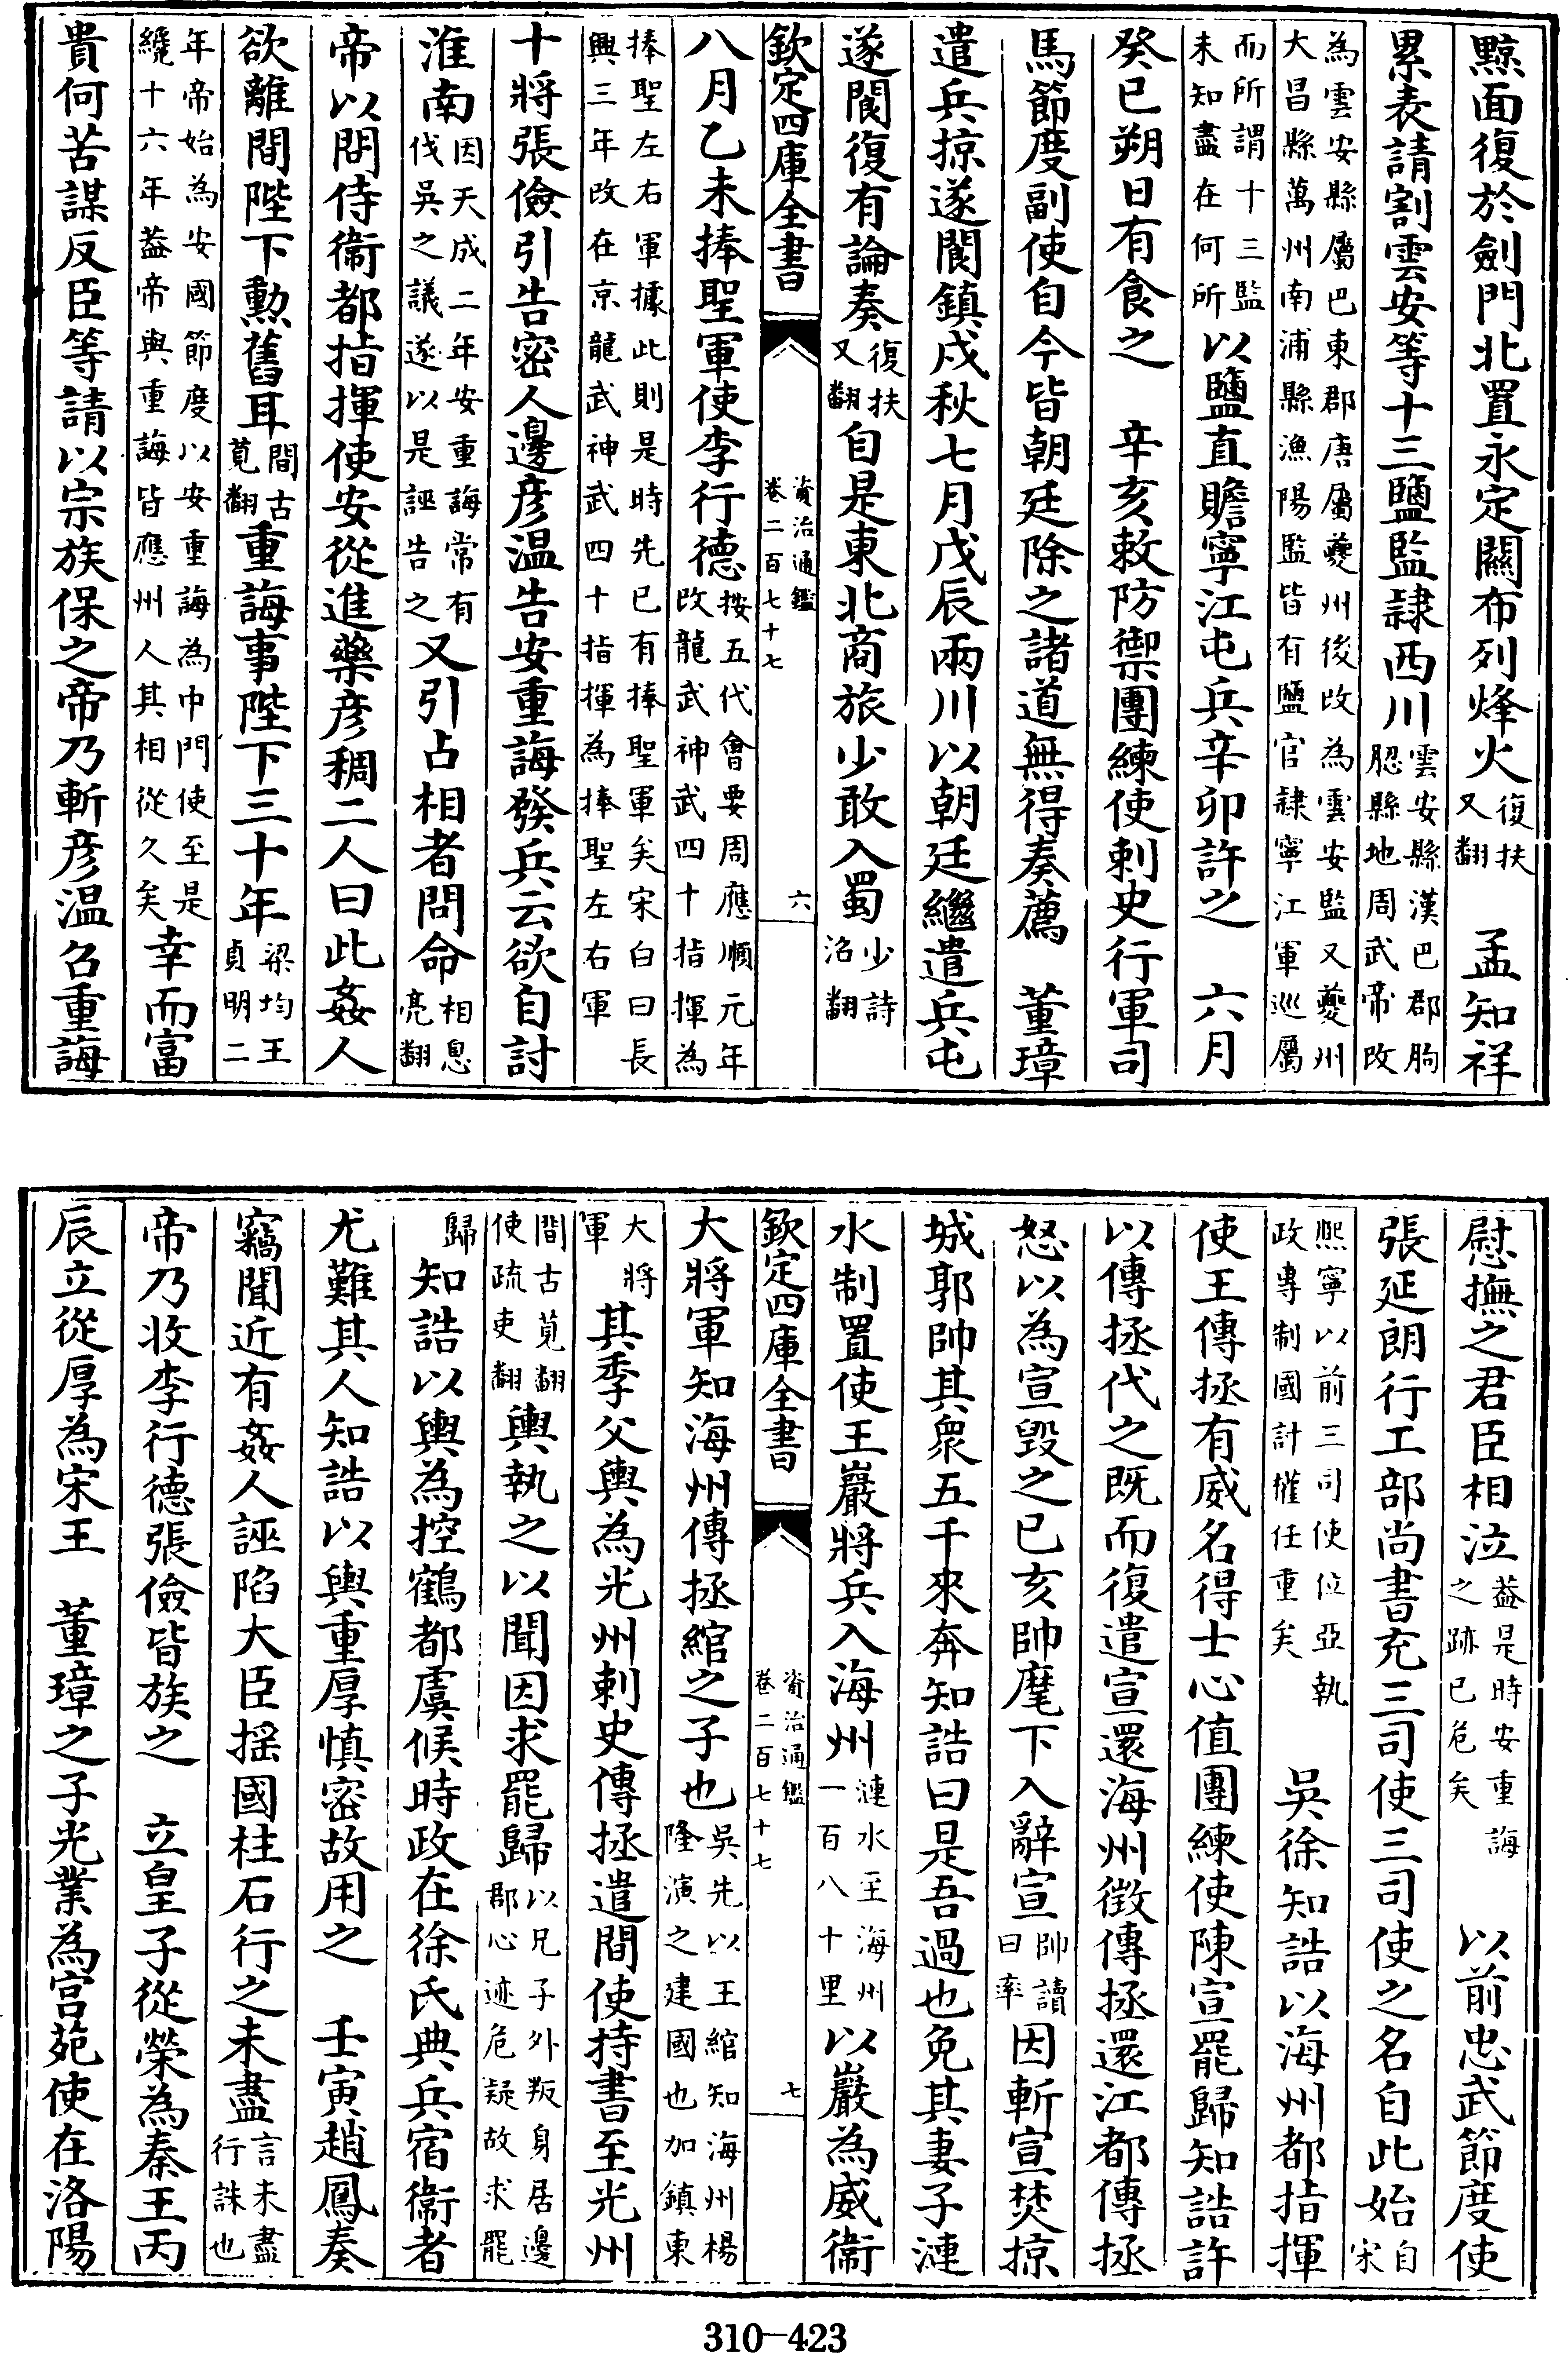 黥面復於劍門北置永定關布列烽火復扶又翻　孟知祥
累表請割雲安等十三鹽監隷西川雲安縣漢巴郡朐䏰縣地周武帝改
為雲安縣屬巴東郡唐屬夔州後改為雲安監又夔州大昌縣萬州南浦縣漁陽監皆有鹽官隷寧江軍巡屬
而所謂十三監未知盡在何所以鹽直贍寧江屯兵辛卯許之　六月
癸巳朔日有食之　辛亥敕防禦團練使刺史行軍司
馬節度副使自今皆朝廷除之諸道無得奏薦　董璋
遣兵掠遂閬鎮戍秋七月戊辰兩川以朝廷繼遣兵屯
遂閬復有論奏復扶又翻自是東北商旅少敢入蜀少詩沼翻
欽定四庫全書　資治通鑑卷二百七十七　六
八月乙未捧聖軍使李行德按五代會要周應順元年改龍武神武四十指揮為
捧聖左右軍據此則是時先已有捧聖軍矣宋白曰長興三年改在京龍武神武四十指揮為捧聖左右軍
十將張儉引告密人邊彦温告安重誨發兵云欲自討
淮南因天成二年安重誨常有伐吳之議遂以是誣告之又引占相者問命相息亮翻
帝以問侍衞都指揮使安從進藥彦稠二人曰此姦人
欲離間陛下勲舊耳間古莧翻重誨事陛下三十年梁均王貞明二
年帝始為安國節度以安重誨為中門使至是纔十六年葢帝與重誨皆應州人其相從久矣幸而富
貴何苦謀反臣等請以宗族保之帝乃斬彦温召重誨
慰撫之君臣相泣葢是時安重誨之跡已危矣　以前忠武節度使
張延朗行工部尚書充三司使三司使之名自此始自宋
熙寧以前三司使位亞執政專制國計權任重矣　吳徐知誥以海州都指揮
使王傳拯有威名得士心值團練使陳宣罷歸知誥許
以傳拯代之既而復遣宣還海州徵傳拯還江都傳拯
怒以為宣毀之己亥帥麾下入辭宣帥讀曰率因斬宣焚掠
城郭帥其衆五千來奔知誥曰是吾過也免其妻子漣
水制置使王巖將兵入海州漣水至海州一百八十里以巖為威衞
欽定四庫全書　資治通鑑卷二百七十七　七
大將軍知海州傳拯綰之子也吳先以王綰知海州楊隆演之建國也加鎮東
大將軍其季父輿為光州刺史傳拯遣間使持書至光州
間古莧翻使疏吏翻輿執之以聞因求罷歸以兄子外叛身居邊郡心迹危疑故求罷
歸知誥以輿為控鶴都虞候時政在徐氏典兵宿衞者
尤難其人知誥以輿重厚慎密故用之　壬寅趙鳳奏
竊聞近有姦人誣陷大臣揺國柱石行之未盡言未盡行誅也
帝乃收李行德張儉皆族之　立皇子從榮為秦王丙
辰立從厚為宋王　董璋之子光業為宫苑使在洛陽
310-423